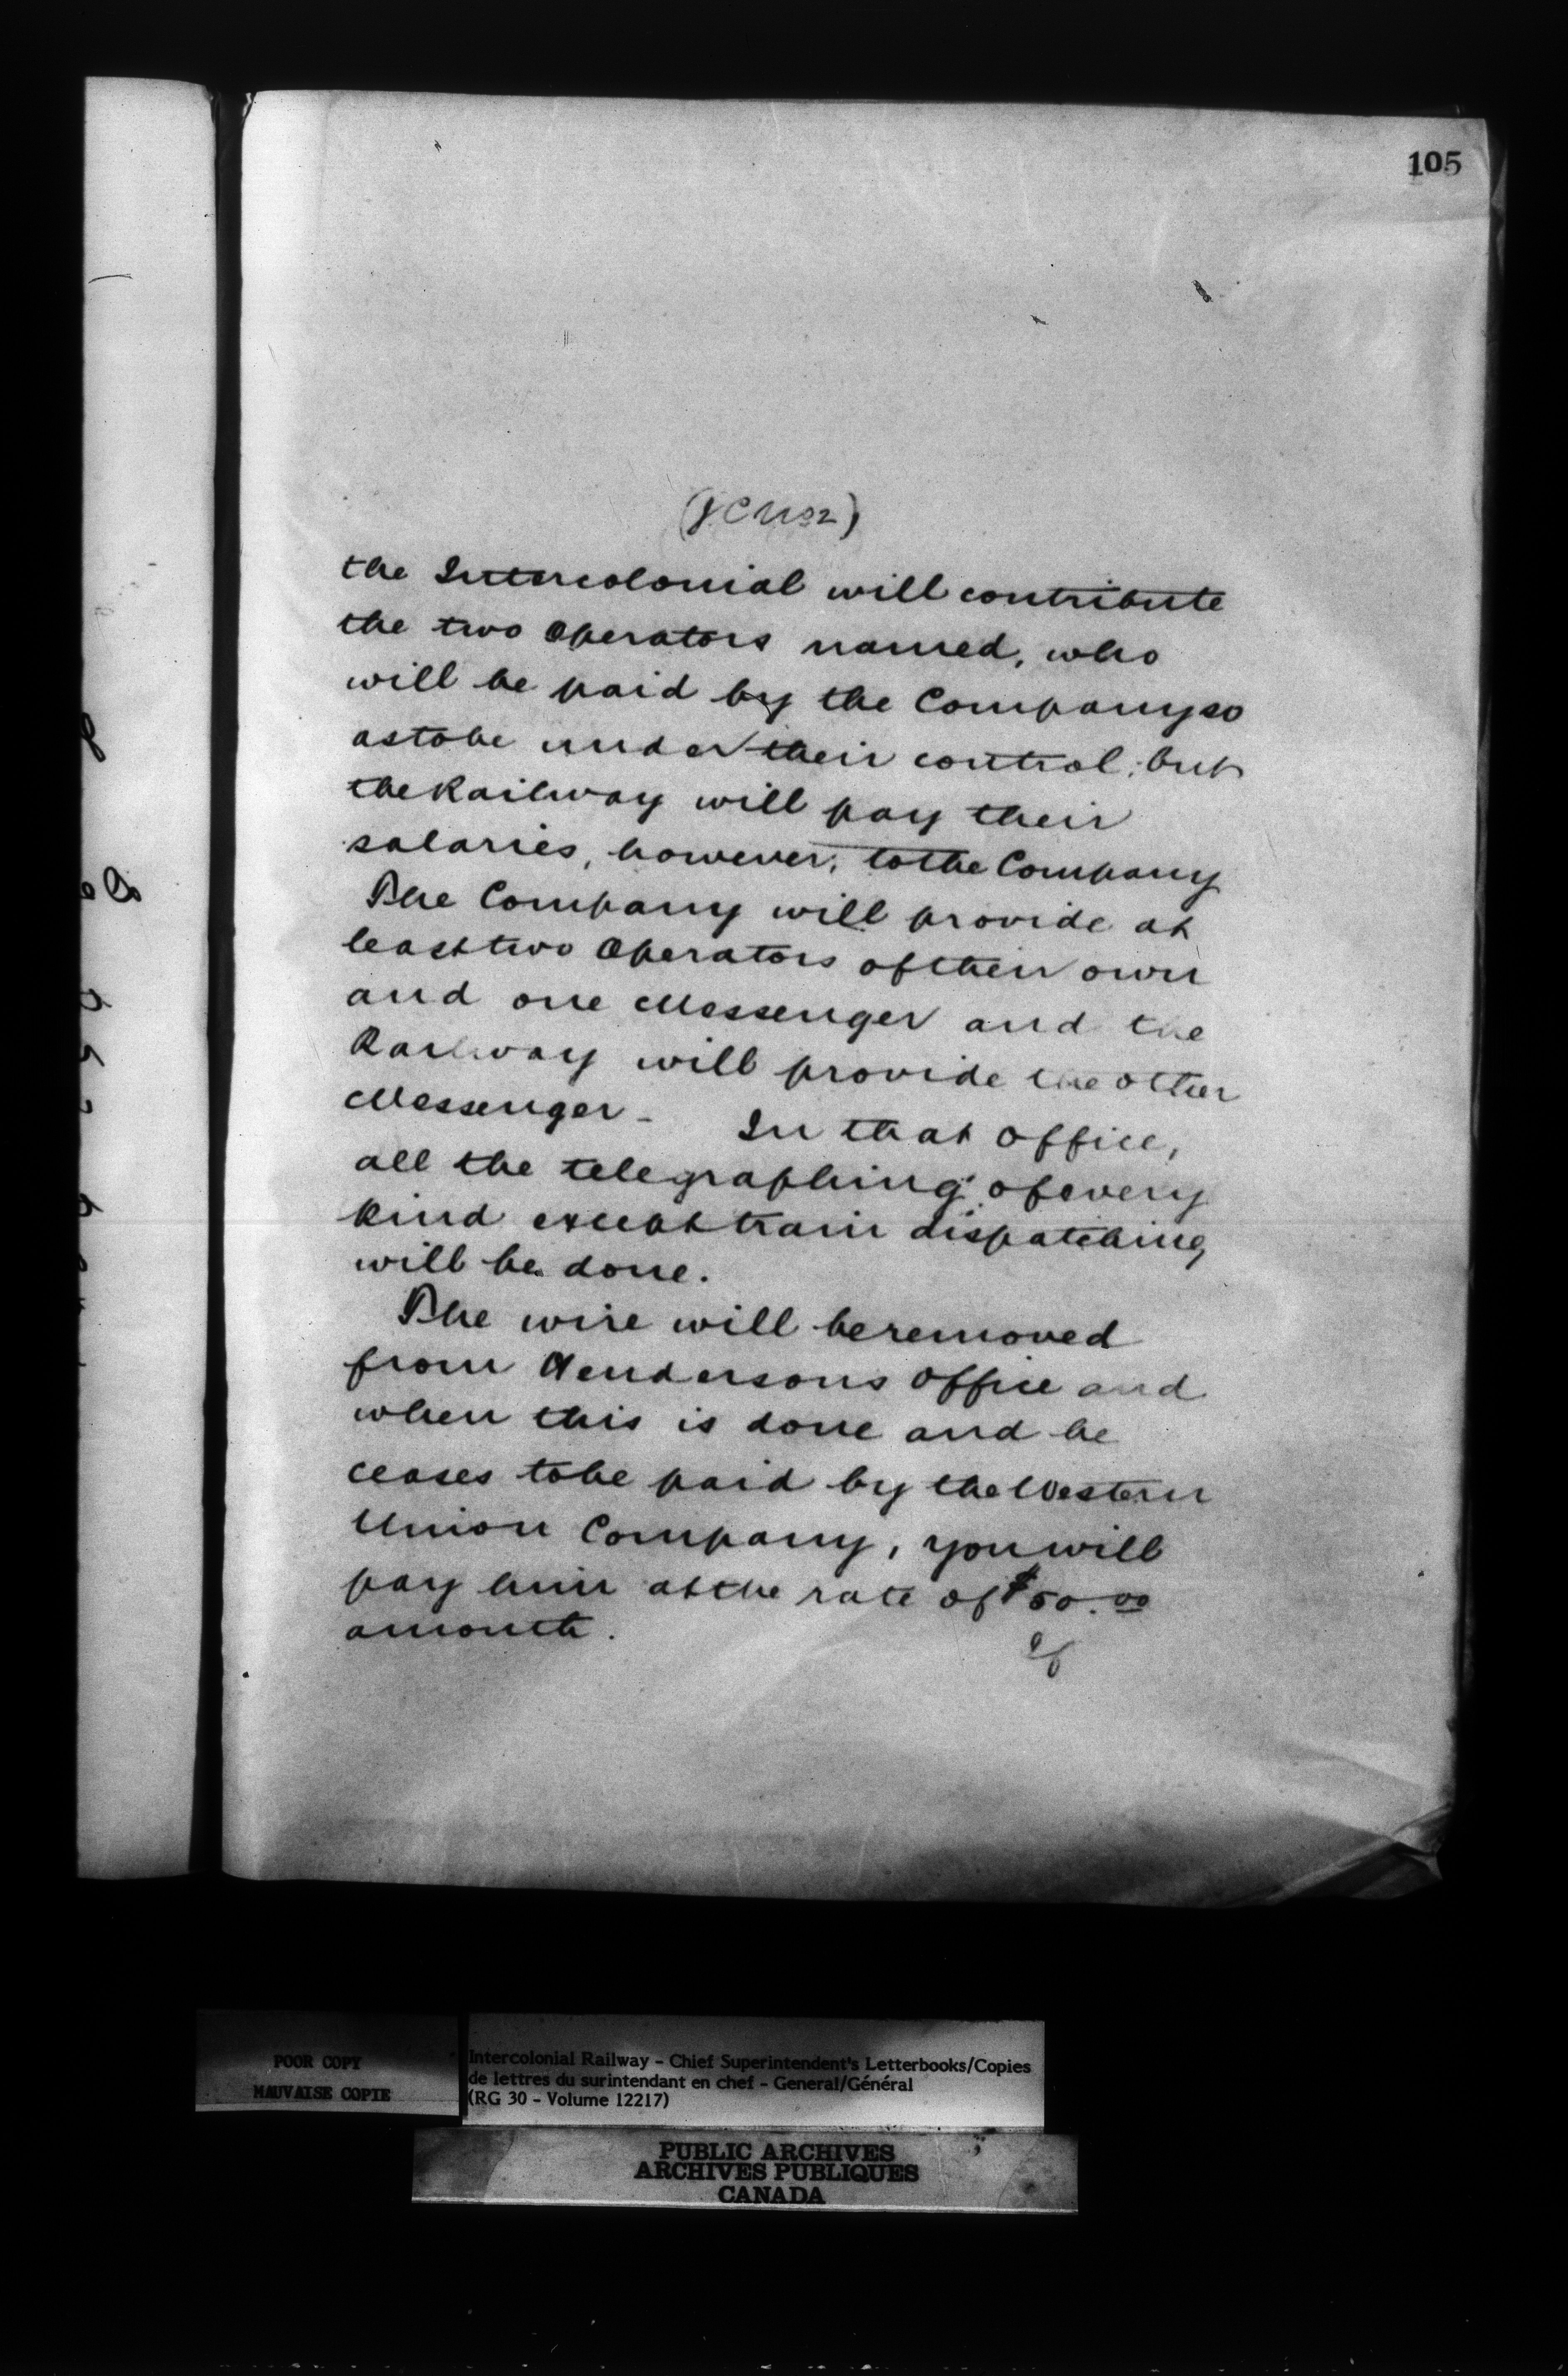 105
(JC No 2)
the Intercolonial will contribute
the two Operators named, who
will be paid by the Company so
as to be under their control; but
the Railway will pay their
salaries, however, to the Company
The Company will provide at
least two Operators of their own
and one Messenger and the
Railway will provide the other
Messenger - In that office,
all the telegraphing of every
kind except train dispatching
will be done.
The wire will be removed
from Hendersons Office and
when this is done and he
ceases to be paid by the Western
Union Company, you will
pay him at the rate of $50.00
a month.
POOR COPY
MAUVAISE COPIE
Intercolonial Railway - Chief Superintendent's Letterbooks/Copies
de lettres du surintendant en chef - General/Général
(RG 30 - Volume 12217)
PUBLIC ARCHIVES
ARCHIVES PUBLIQUES
CANADA